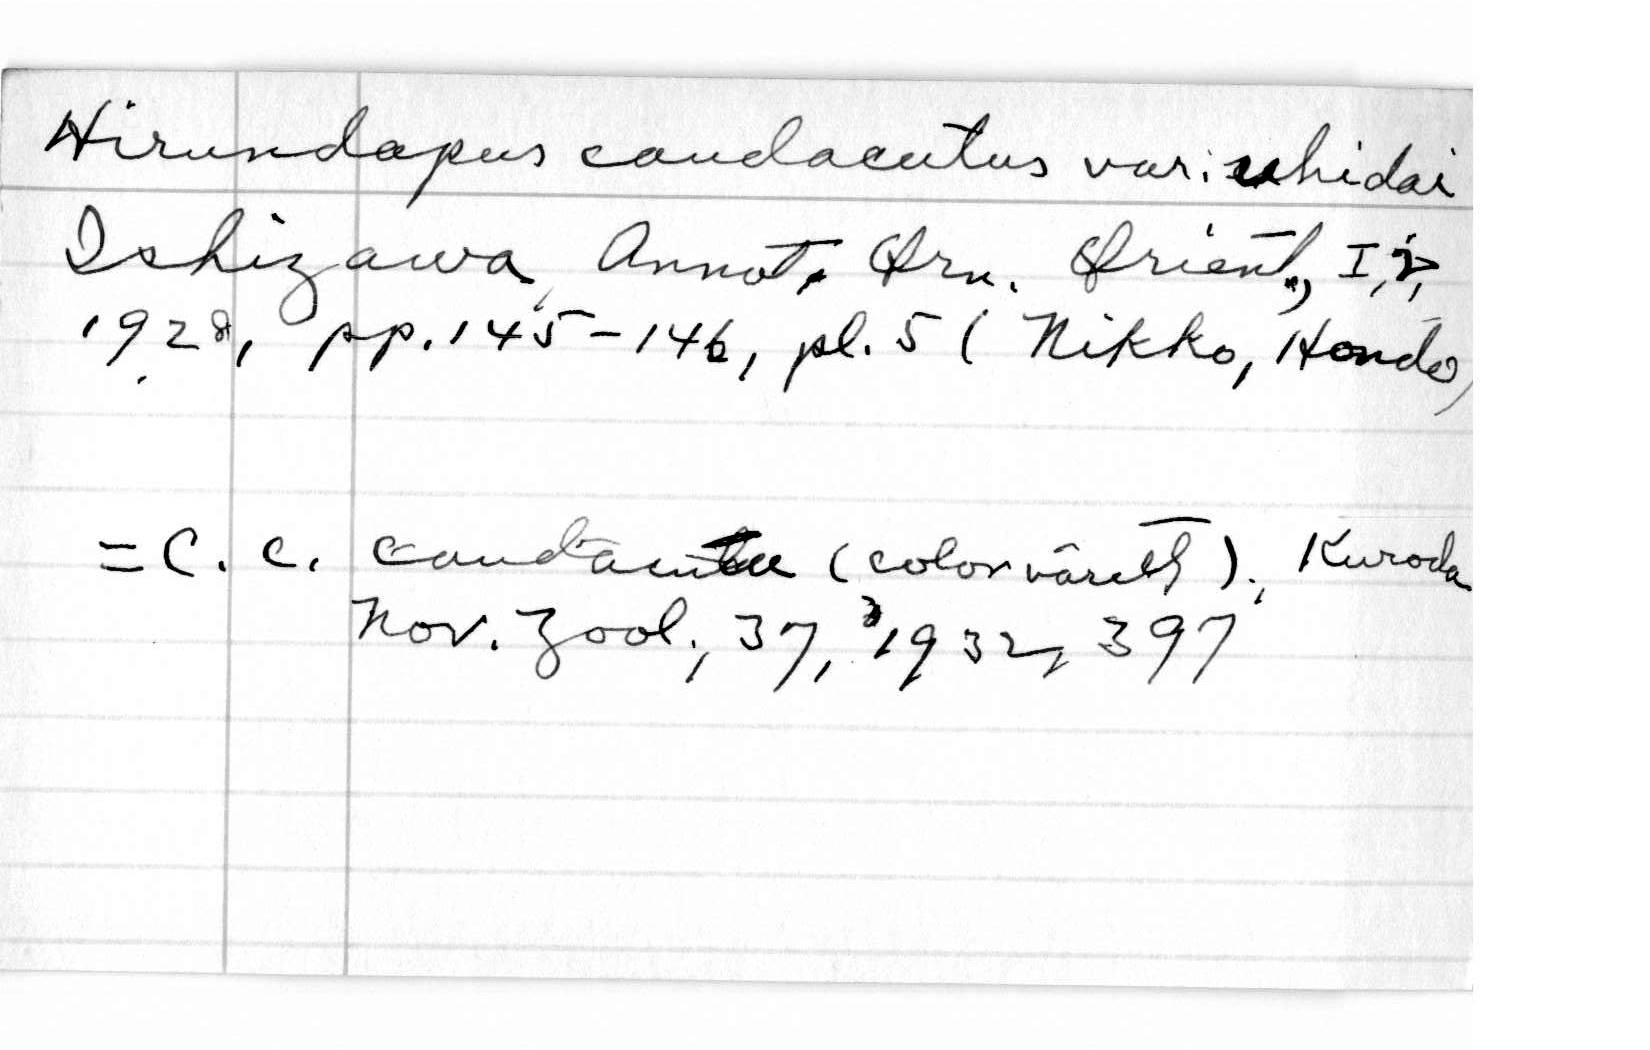 Hirundapus caudacutus var. uchidai
Ishizawa, Annot. Orn. Orient., I, 2,
1928, pp. 145-146, pl. 5 (Nikko, Hondo)
= C. c. caudacuta (color variety), Kuroda
Nov. Zool., 37, 1932, 397